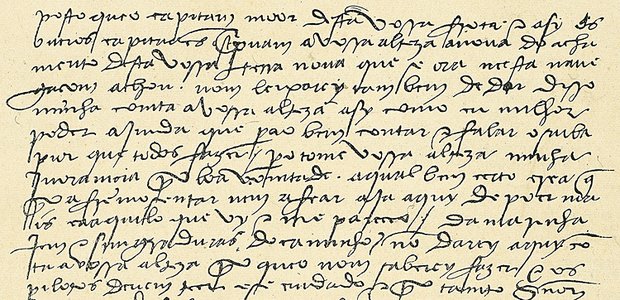 posto que o capitam moor desta vossa frota e asy os
outros capitaães screpuam a vossa alteza a noua do acha
mento desta vossa terra noua que se ora neesta naue
gaçom achou. nom leixarey tambem de dar disso
minha comta a vossa alteza asy como eu milhor
poder ajmda que pera o bem contar e falar o saiba
pior que todos fazer / pero tome vossa alteza minha
jnoramçia por boa vomtade. a qual bem çerto crea q̃
por afremosentar nem afear aja aquy de poer ma
is ca aquilo que vy e me pareçeo / da marinha
jem e simgraduras do caminho nõ darey aquy cõ
ta a vossa alteza por que o nom saberey fazer e os
pilotos deuem teer ese cuidado e por tamto Snõr